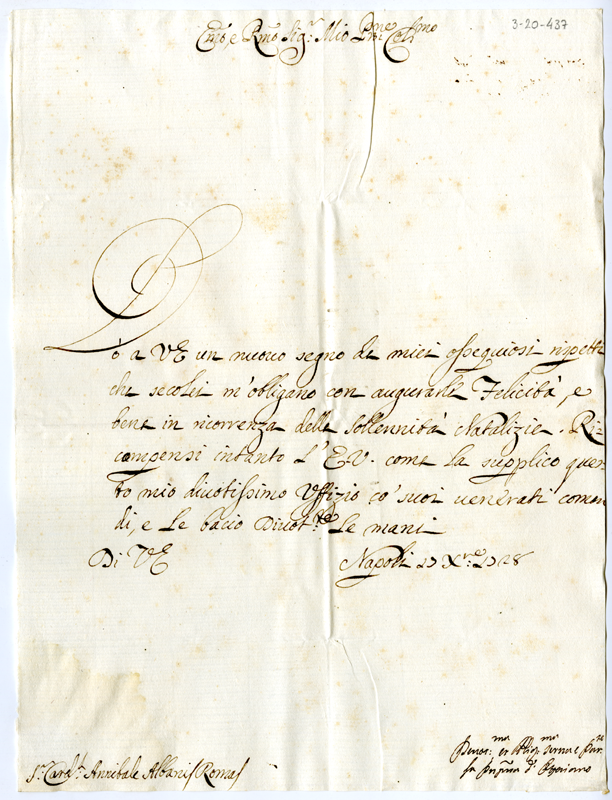 3-20-437
Em̃o, e Rm̃o Sig.r Mio P̃rne Col.mo
Dò a VE un nuovo segno de miei ossequiosi rispetti
che seco lei m'obligano con augurarle Felicità, e
bene in ricorrenza delle Sollennità Natalizie. Ri-
compensi intanto l'E.V. come la supplico ques
to mio divotissimo Uffizio co' suoi venerati coman
di, e le bacio Divot.te le mani
Di VE Napoli Xre 1728
S.r Card.l Annibale Albani Roma
Devot.ma et Oblig.ma Serva
La